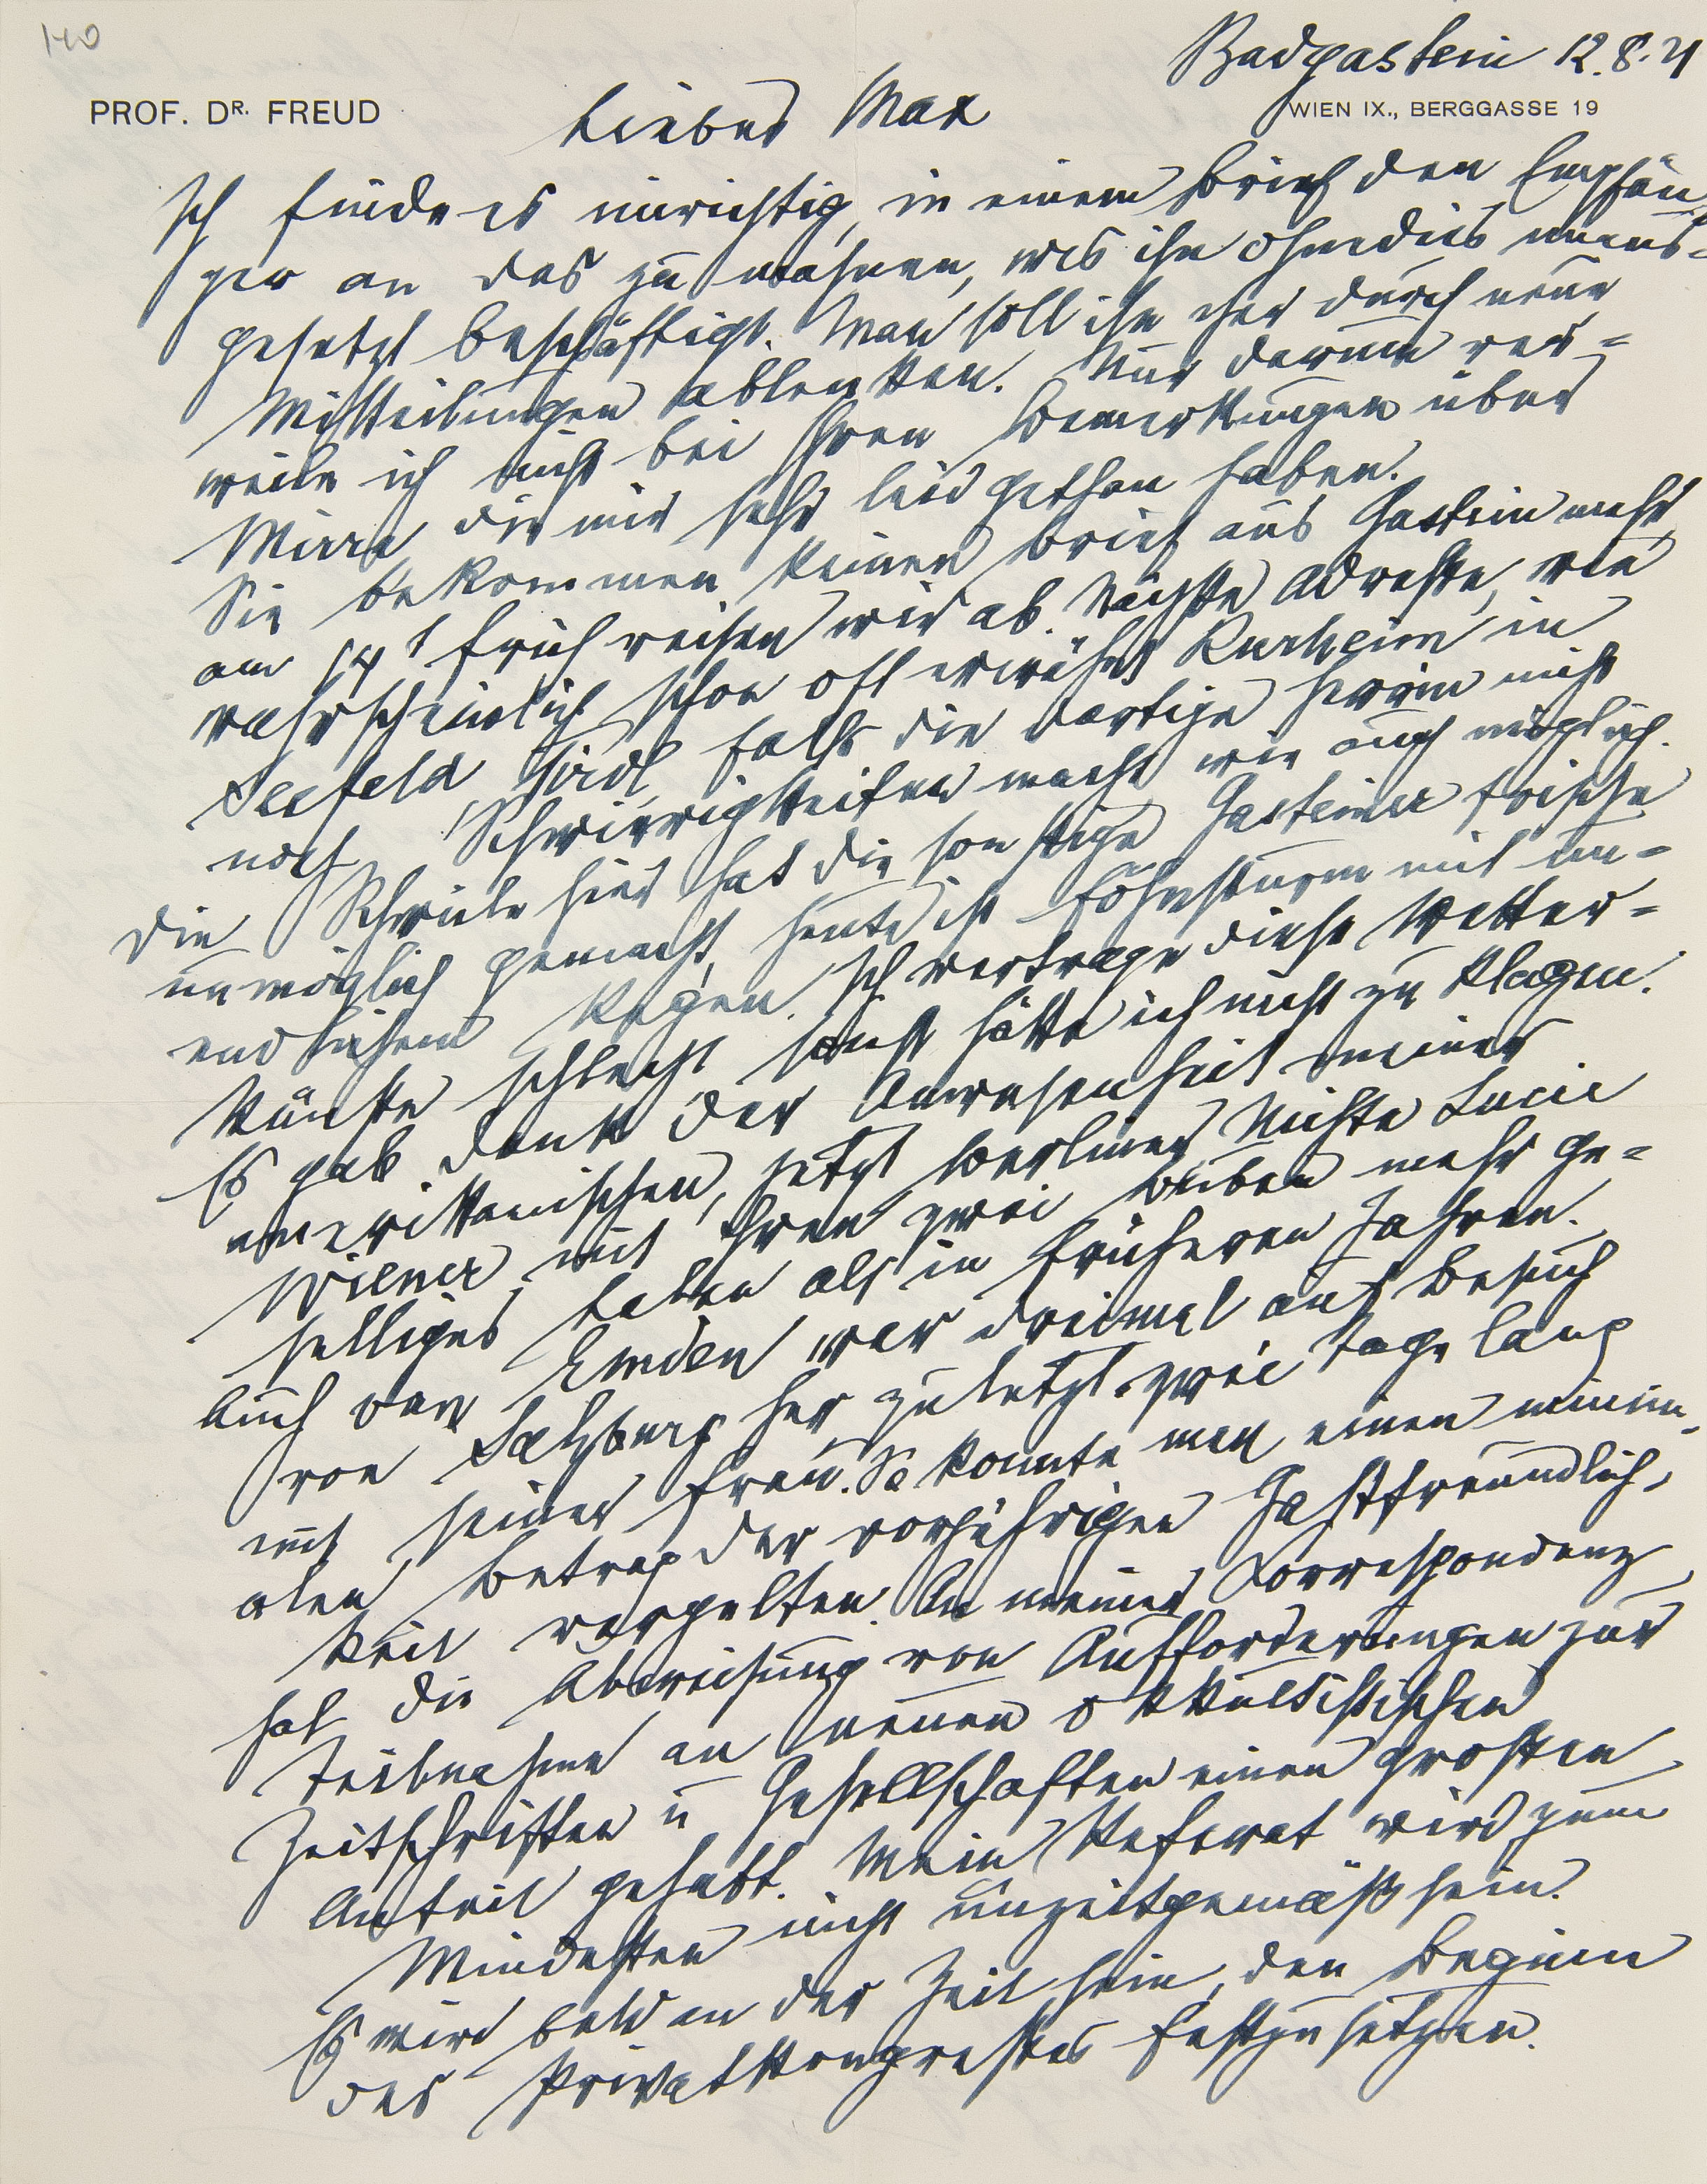 140
Badgastein 12.8.21
PROF. DR. FREUD
WIEN IX., BERGGASSE 19
Lieber Max
Ich finde es unrichtig, in einem Brief den Empfän
ger an das zu mahnen, was ihn ohnedies unaus=
gesetzt beschäftigt. Man soll ihn eher durch neue
Mitteilungen ablenken. Nur darum ver=
weile ich nicht bei Ihren Bemerkungen über
Mirra die mir sehr leid gethan haben.
Sie bekommen keinen Brief aus Gastein mehr,
am 14t früh reisen wir ab. Nächste Adresse, wie
wahrscheinlich schon oft erwähnt Kurheim in
Seefeld Tirol, falls die dortige Herrin nicht
noch Schwierigkeiten macht wie auch möglich.
Die Schwüle hier hat die sonstige Gasteiner Frische
unmöglich gemacht, heute ist Föhnsturm mit un=
endlichem Regen. Ich vertrage diese Wetter=
künste schlecht sonst hätte ich nicht zu klagen.
Es gab dank der Anwesenheit meiner
amerikanischen, jetzt Berliner Nichte Lucie
Wiener mit ihren zwei Buben mehr ge=
selliges Leben als in früheren Jahren.
Auch van Emden war dreimal auf Besuch
von Salzburg her zuletzt zwei Tage lang
mit seiner Frau. So konnte man einen minim-
alen Betrag der vorjährigen Gastfreundlich-
keit vergelten. An meiner Korrespondenz
hat die Abweisung von Aufforderungen zur
Teilnahme an neuen okkultistischen
Zeitschriften u Gesellschaften einen grossen
Anteil gehabt. Mein Referat wird zum
Mindesten nicht unzeitgemäß sein.
Es wird bald an der Zeit sein, den Beginn
des Privatkongresses festzusetzen.